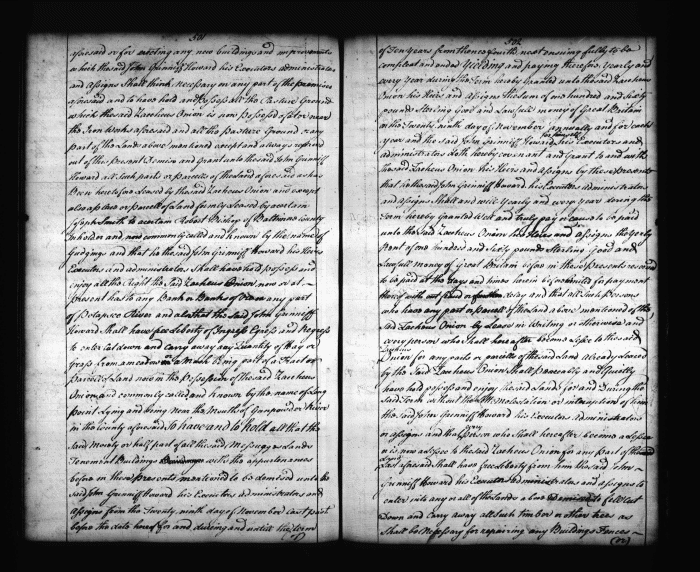 501
aforesaid or for erecting any new buildings and improvements
which the said John Grinniff Howard his Executors administrators
and assigns Shall think necessary on any part of the premises
aforesaid and to have hold and possess all the Pasture Ground
which the said Zacheus Onion is now possesed of at or near
the Iron Works aforesaid and all the Pasture Ground on any
part of the Lands above mentioned except and always reserved
out of this present Demise and Grant unto the said John Grinniff
Howard all such parts or parcells of the land aforesaid as has
Been heretofore Leased by the said Zacheus Onion and except
also a piece or parcell of Land formerly Leased by a certain
Joseph Smith to a certain Robert Bishop of Baltimore County
Inholder and now commonly called and known by the name of
Gudgings and that he the said John Grinniff Howard his Heirs
Executors and administrators Shall have hold possess and
enjoy all the Right the said Zacheus Onion now or at
present has to any Bank or Banks of Oar in any part
of Patapsco River and also that the said John Grinniff
Howard Shall have free liberty of Ingress Egress and Regress
to enter cut down and carry away any Quantity of Hay or
Grass from a meadow or a Marsh Being part of a Tract or
Parcell of Land now in the Possession of the said Zacheus
Onion and commonly called and known by the name of Long
point Lying and being near the Mouth of Gunpowder River
in the County aforesaid To have and to hold all that the
said Moiety or half part of all the said Messuages Lands
Tenements Buildings with the appurtenances
before in these Presents mentioned to be demised unto the
said John Grinniff Howard his Executors administrators and
assigns from the Twenty ninth day of November Last past
before the date hereof for and during and untill the Term
(of)
502
of Ten Years from thence forth next ensuing fully to be
compleat and ended Yielding and paying therefore Yearly and
every Year during the Term hereby Granted unto the said Zacheus
Onion his Heirs and assigns the sum of one hundred and Sixty
pounds Sterling Good and Lawfull money of Great Britain
on the Twenty ninth day of November annually and for each
year and the said John Grinniff Howard for himself his Executors and
administrators doth hereby covenant and Grant to and with the
said Zacheus Onion his Heirs and assigns by these presents
that he the said John Grinniff Howard his Executors administrators
and assigns Shall and will yearly and every year during the
Term hereby Granted Well and truly pay or cause to be paid
unto the said Zacheus Onion his Heirs and assigns the yearly
Rent of one hundred and Sixty pounds Sterling Good and
Lawfull money of Great Britain before in these presents reserved
to be paid at the days and times herein before limited for payment
thereof with out fraud or further delay and that all such persons
who have any part or parcell of the land above mentioned of the
said Zacheus Onion by Lease in Writing or otherwise and
every person who Shall hereafter become a Lessee to the said
Onion for any parts or parcells of the said Land already Leased
by the said Zacheus Onion Shall peaceably and Quietly
have hold possess and enjoy the said Lands for and During the
said Term without the Molestation or interruption of him
the said John Grinniff Howard his Executors Administrators
or assigns and that any Person who Shall hereafter become a Lessee
or is now a Lessee to the said Zacheus Onion for any part of the
Land aforesaid Shall have free liberty from him the said John
Grinniff Howard his Executors administrators and assigns to
enter into any or all of the Lands above demised to fell Cut
Down and Carry away all Such timber or other trees as
Shall be Necessary for repairing any Buildings Fences
(or)